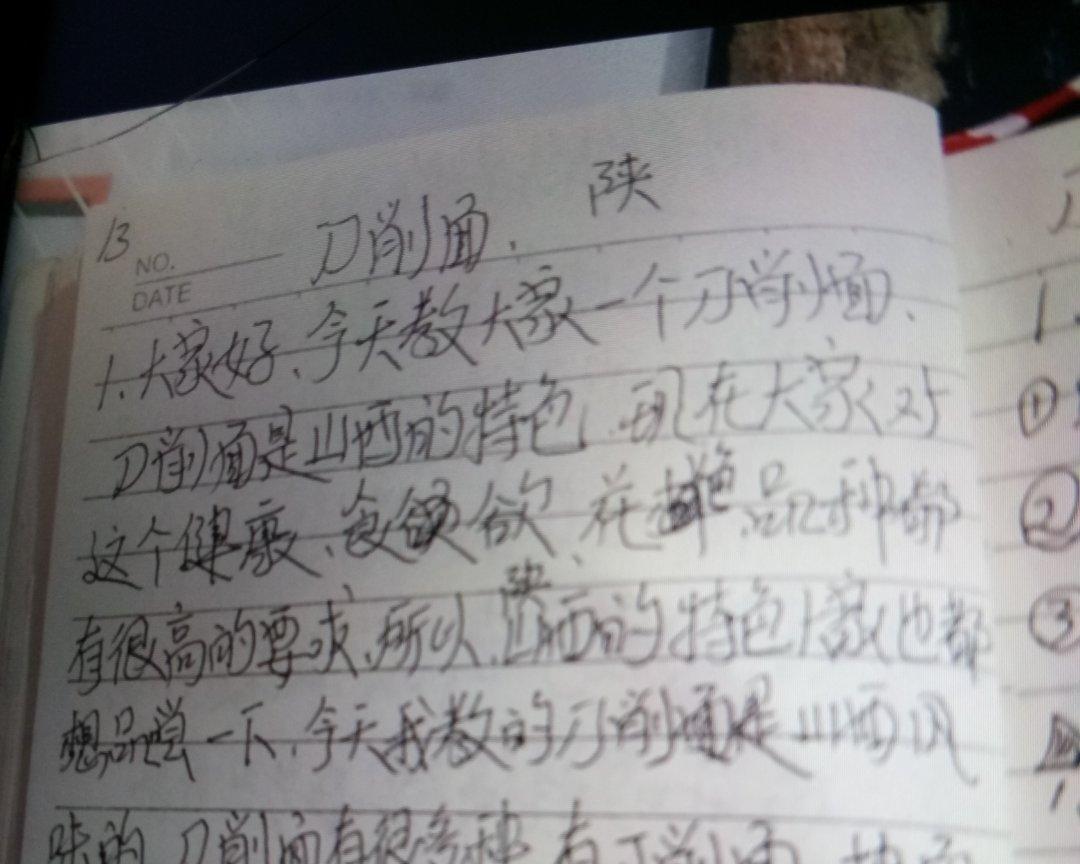 陕
13 刀削面.
NO.
DATE
1.大家好、今天教大家一个刀削面、
刀削面是山西的特色.现在大家对
这个健康、食欲、花色品种都
有很高的要求、所以、陕西的特色大家也都
想品尝一下、今天我教的刀削面是山西风
味的 刀削面有很多种 有刀削面
1
①
②
③